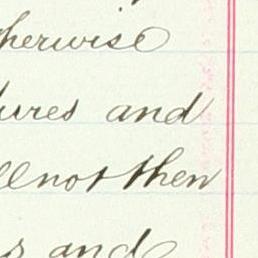 herwise
ures and
ll not then
s and